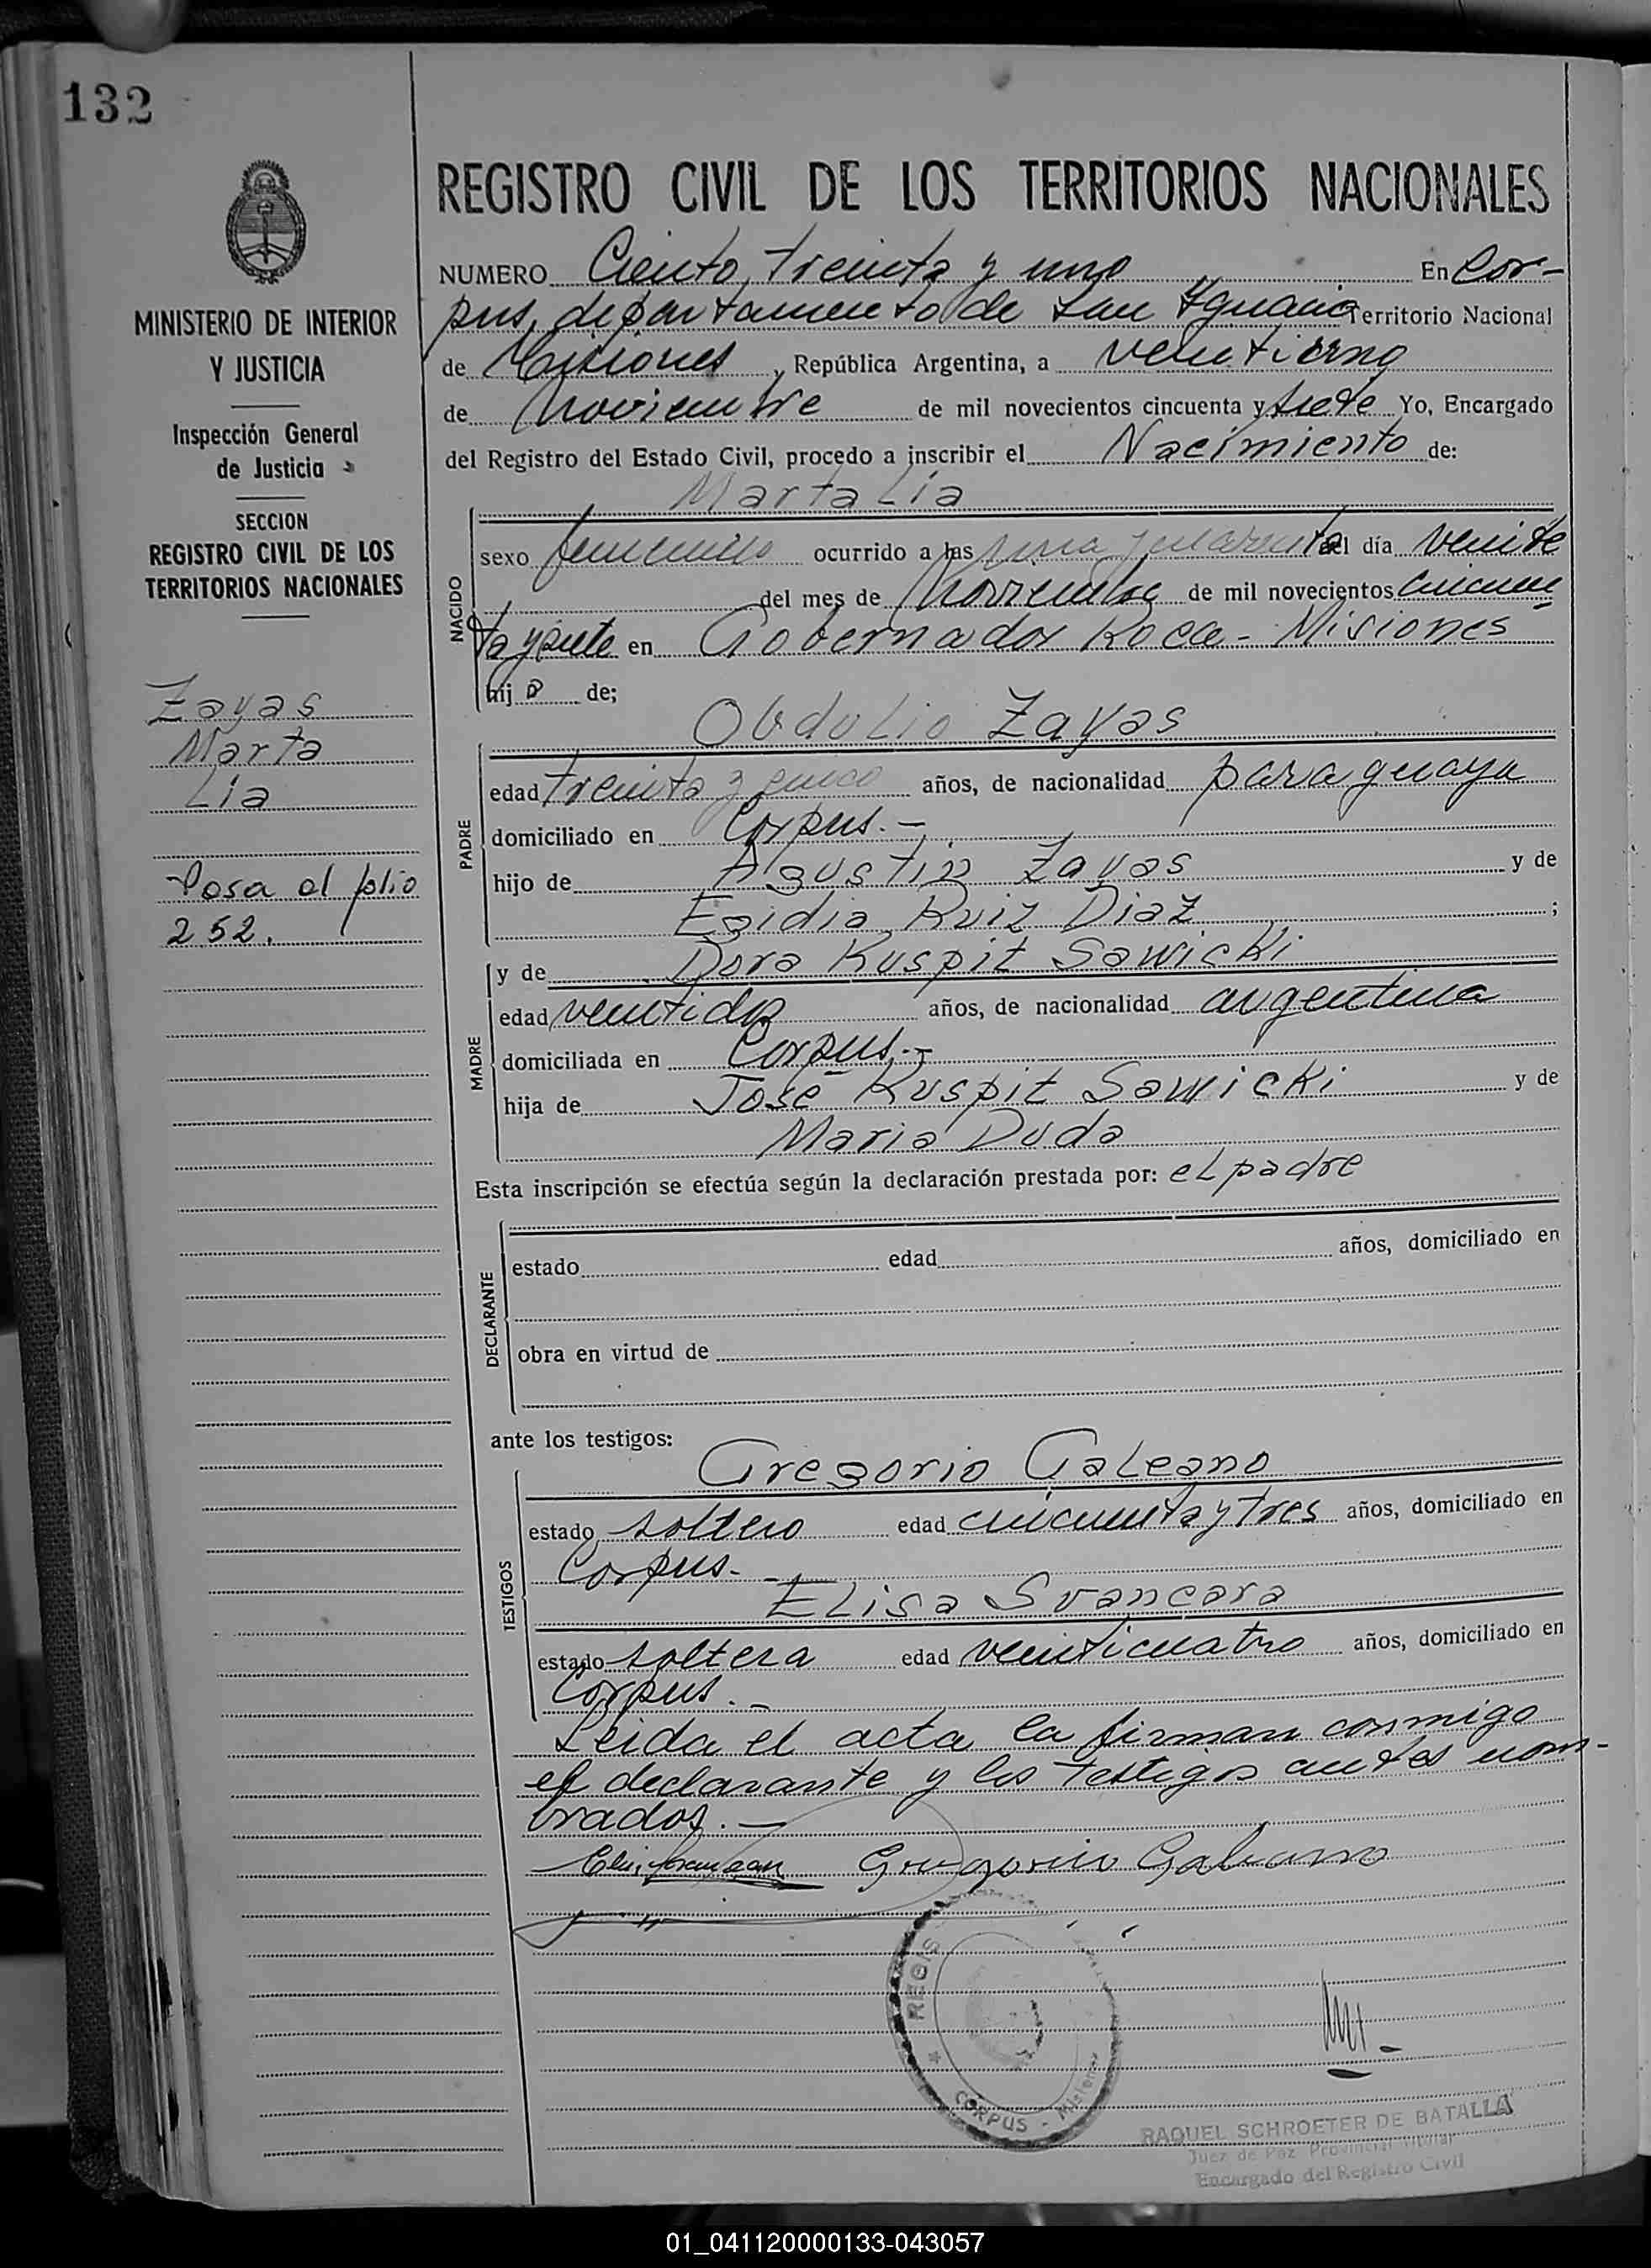 132
MINISTERIO DE INTERIOR
Y JUSTICIA
Inspección General
de Justicia
SECCION
REGISTRO CIVIL DE LOS
TERRITORIOS NACIONALES
Zayas
Marta
Lia
Pasa al folio
252.
REGISTRO CIVIL DE LOS TERRITORIOS NACIONALES
NUMERO Ciento treinta y uno En Cor-
pus, departamento de San Ignacio Territorio Nacional
de Misiones, República Argentina, a veintiuno
de Noviembre de mil novecientos cincuenta y siete Yo, Encargado
del Registro del Estado Civil, procedo a inscribir el Nacimiento de:
Marta Lia
NACIDO
sexo femenino ocurrido a las una y cuarenta del día veinte
del mes de Noviembre de mil novecientos cincuen
ta y siete en Gobernador Roca - Misiones
hij a de;
Obdulio Zayas
PADRE
edad treinta y cinco años, de nacionalidad paraguaya
domiciliado en Corpus.-
hijo de Agustin Zayas y de
Egidia Ruiz Diaz ;
y de Dora Kuspit Sawicki
MADRE
edad veintidos años, de nacionalidad argentina
domiciliada en Corpus.-
hija de José Kuspit Sawicki y de
Maria Duda
Esta inscripción se efectúa según la declaración prestada por: el padre
DECLARANTE
estado edad años, domiciliado en
obra en virtud de
ante los testigos:
Gregorio Galeano
TESTIGOS
estado soltero edad cincuenta y tres años, domiciliado en
Corpus.-
Elisa Svancara
estado soltera edad veinticuatro años, domiciliado en
Corpus.-
Leida el acta la firman conmigo
el declarante y los testigos antes nom-
brados.-
Gregorio Galeano
REGIS
CORPUS - Misiones
RAQUEL SCHROETER DE BATALLA
Juez de Paz Provincial Titular
Encargado del Registro Civil
01_041120000133-043057